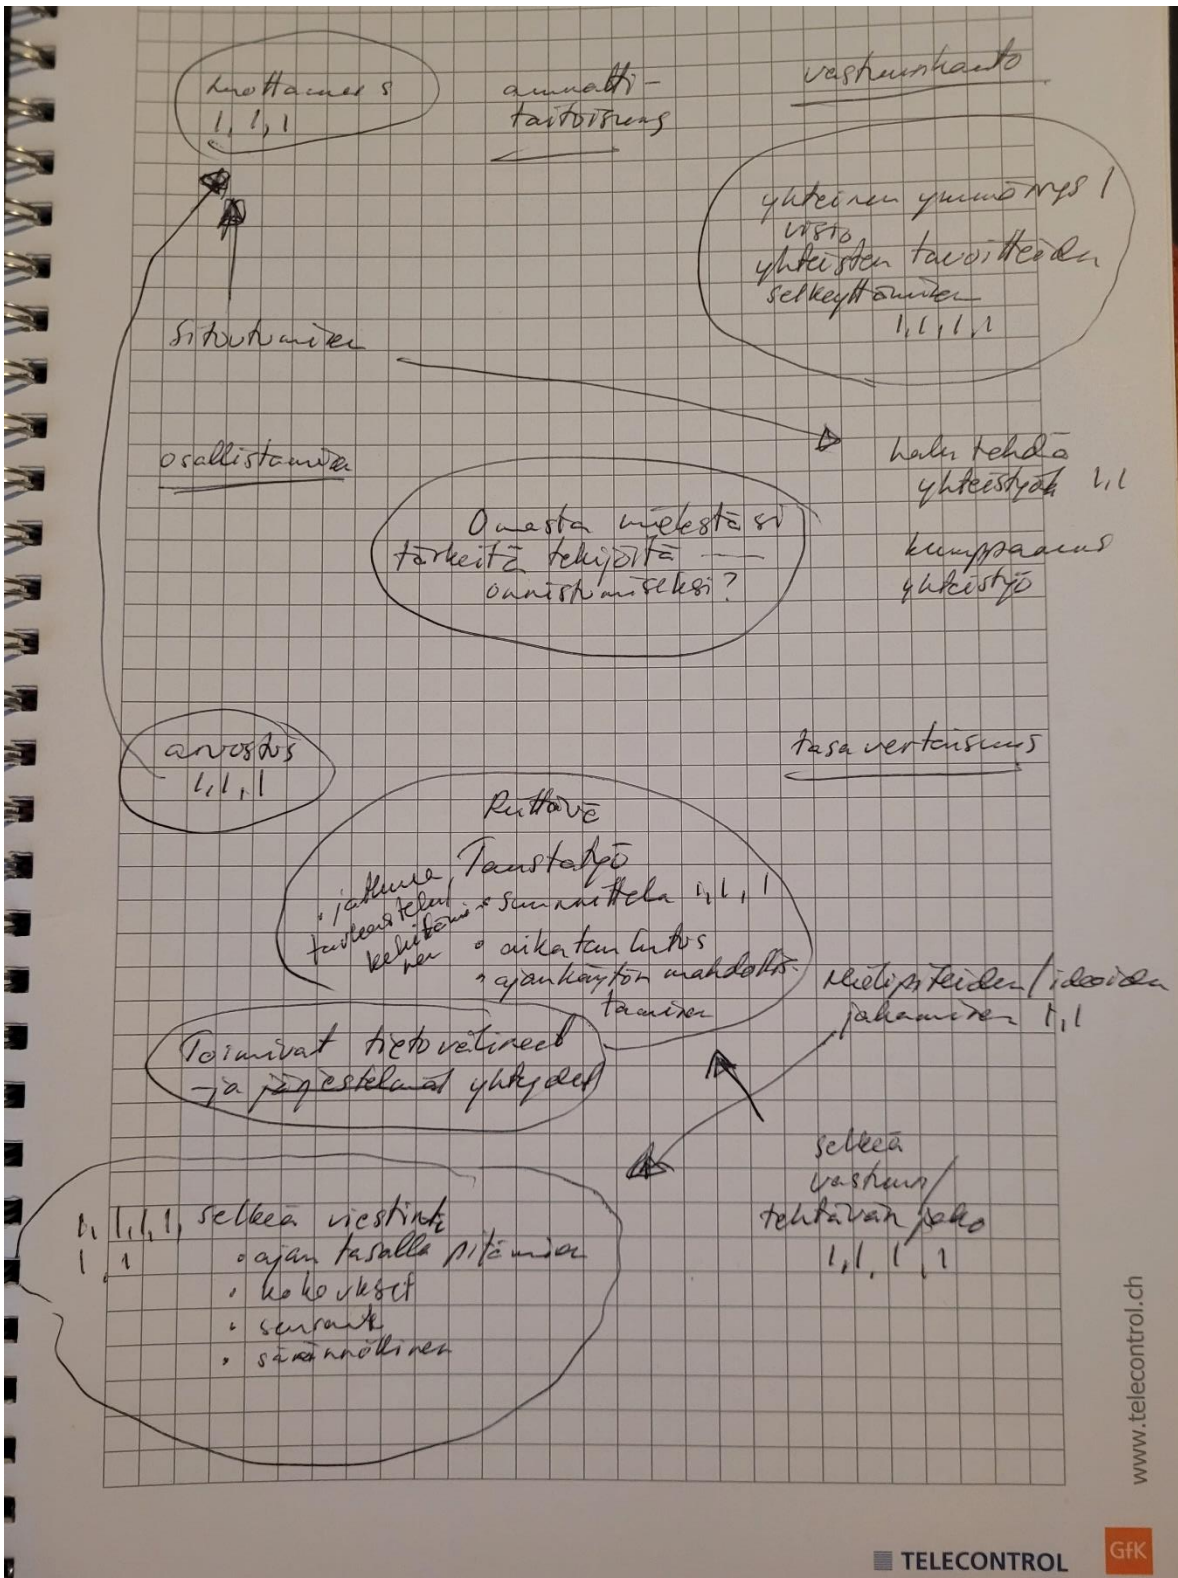 luottamus 5
1, 1, 1
ammatti-
taitoisuus
vastuunkanto
yhteinen ymmärrys 1
visio
yhteisten tavoitteiden
selkeyttäminen
1, 1, 1, 1
Sitoutuminen
osallistaminen
halu tehdä
yhteistyötä 1, 1
Omasta mielestäsi
tärkeitä tekijöitä —
onnistumiseksi?
kumppanuus
yhteistyö
arvostus
1, 1, 1
tasavertaisuus
Riittävä
Taustatyö
• jatkuva
tarkastelu/
kehittämi-
nen
• suunnittelu 1, 1, 1
• aikataulutus
• ajankäytön mahdollis-
taminen
Mielipiteiden/ideoiden
jakaminen 1, 1
Toimivat tietovälineet
-ja järjestelmät yhteydet
selkeä
vastuun/
tehtävän jako
1, 1, 1, 1
1, 1, 1, 1, selkeä viestintä
1, 1
• ajan tasalla pitäminen
• kokoukset
• seuranta
• säännöllinen
www.telecontrol.ch
TELECONTROL
GfK